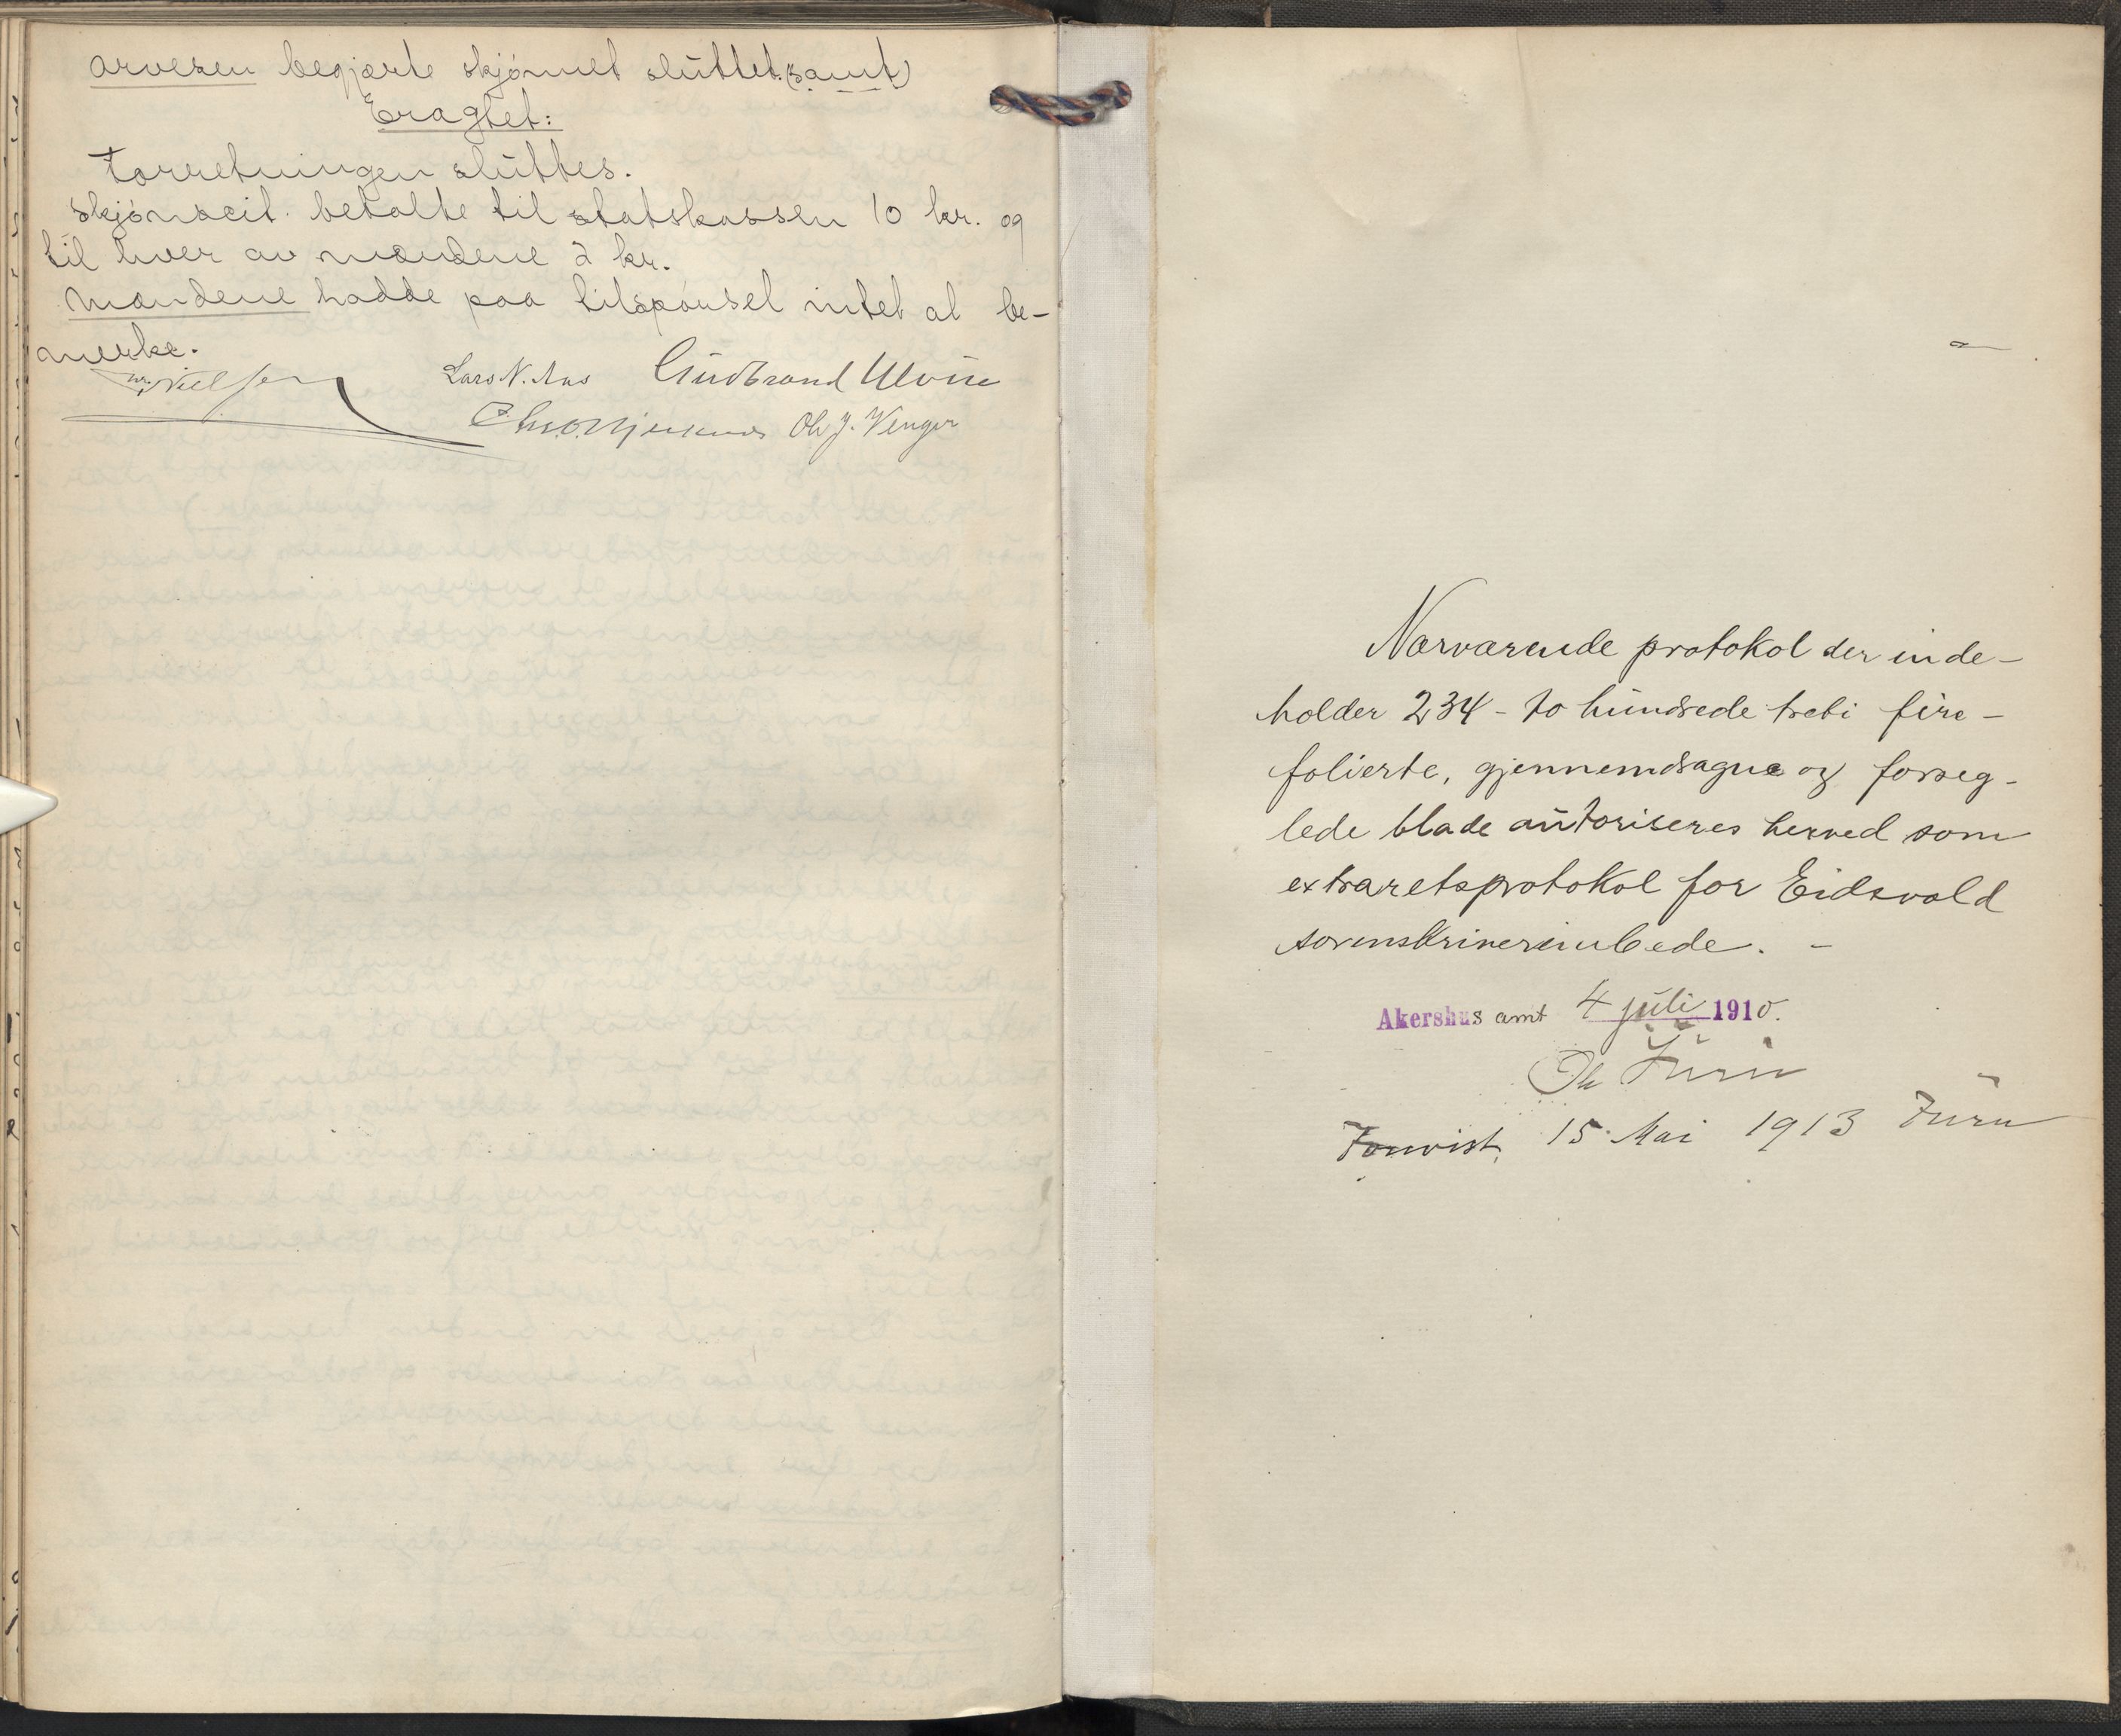 Arvesen begjærte skjønnet sluttet. (samt)
Eragtet:
Forretningen sluttes.
Skjønscit. betalte til statskassen 10 kr. og
til hver av mændene 2 kr.
Mændene hadde paa tilspørsel intet at be-
merke.
Nielsen Lars N. Aas Gudbrand Ulvin
Ole J. Venger
Nærværende protokol der inde-
holder 234 - to hundrede treti fire -
folierte, gjennemdragne og forseg-
lede blade autoriseres herved som
extraretsprotokol for Eidsvold
sorenskriverembede. -
Akershus amt 4 juli 1910.
Th Furu
Forevist, 15 Mai 1913 Furu